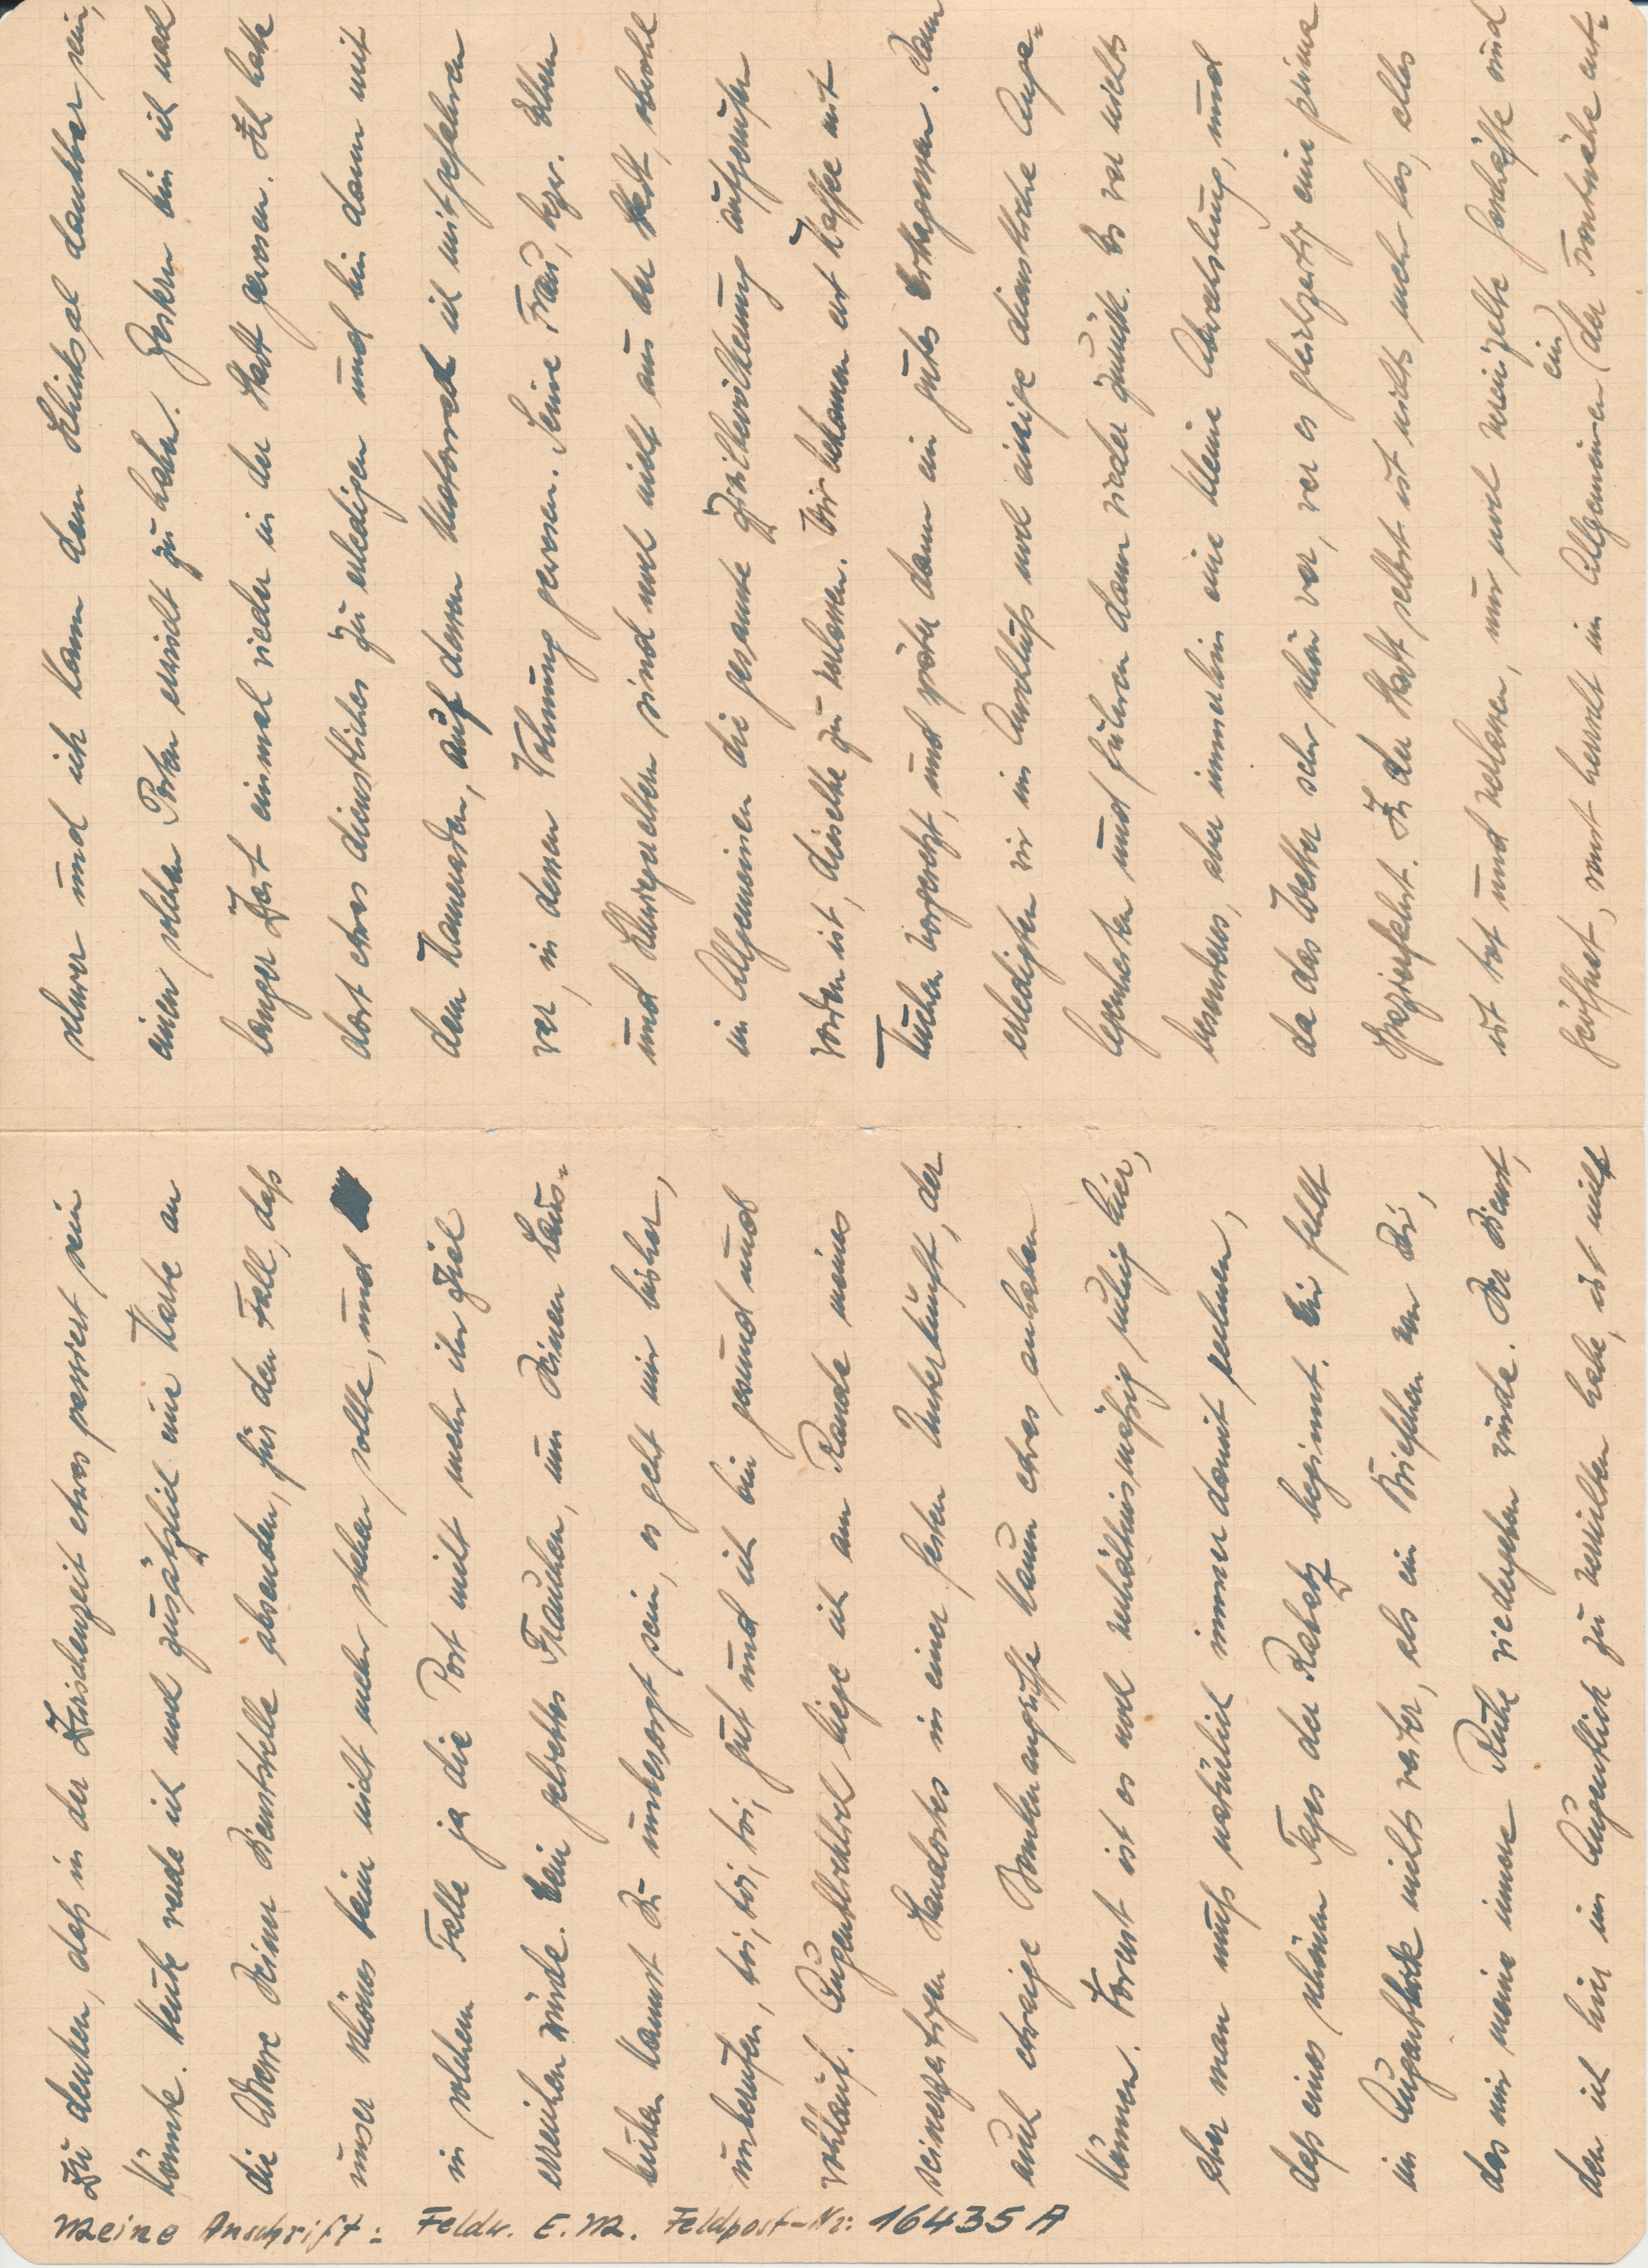 zu denken, daß in der Zwischenzeit etwas passiert sein
könnte. Heute sende ich noch zusätzlich eine Karte an
die Adresse Deiner Dienststelle absenden, für den Fall, daß
unser schönes Heim nicht mehr stehen sollte, und
in solchem Falle ja die Post nicht mehr ihr Ziel
erreichen würde. Mein geliebtes Frauchen, um Deinen Haus-
kannst Du unbesorgt sein, es geht mir bisher,
unberufen, toi, toi, toi, gut und ich bin gesund und
wohlauf. Augenblicklich liege ich am Rande meines
seinerzeitigen Standortes in einer festen Unterkunft, der
auch etwaige Bombenangriffe kaum etwas anhaben
können. Sonst ist es noch verhältnismäßig ruhig hier,
aber man muß natürlich immer damit rechnen,
daß eines schönen Tages der Rabatz beginnt. Mir fehlt
im Augenblick nichts weiter, als ein Briefchen von Dir,
das mir meine innere Ruhe wiedergeben würde. Der Dienst,
den ich hier im Augenblick zu verrichten habe, ist nicht
Meine Anschrift: Feldw. E.M. Feldpost-Nr: 16435 A
schwer und ich kann dem Schicksal dankbar sein,
einen solchen Posten erwischt zu haben. Gestern bin ich nach
langer Zeit einmal wieder in der Stadt gewesen. Ich hatte
dort etwas dienstliches zu erledigen und bin dann mit
dem Kameraden, auf dessen Motorrad ich mitgefahren
war, in dessen Wohnung gewesen. Seine Frau, bezw. Eltern
und Schwiegereltern sind noch nicht aus der Stadt, obwohl
im Allgemeinen die gesamte Zivilbevölkerung aufgerufen
worden ist, dieselbe zu verlassen. Wir bekamen erst Kaffee mit
Kuchen vorgesetzt, und später dann ein gutes Mittagessen. Dann
erledigten wir im Anschluß noch einige dienstliche Ange-
legenheiten und fuhren dann wieder zurück. Es war nichts
besonderes, aber immerhin eine kleine Abwechslung, und
da das Wetter sehr schön war, war es gleichzeitig eine prima
Spazierfahrt. In der Stadt selbst ist nichts mehr los, alles
ist tot und verlassen, nur noch vereinzelte Geschäfte sind
geöffnet, sonst herrscht im Allgemeinen ein (der Frontnähe ent-